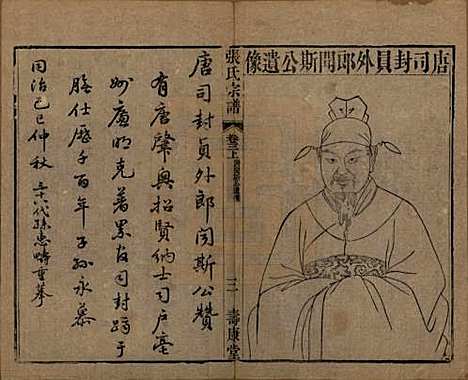 唐司封員外郎閏斯公遺像
張氏宗譜
卷三上
三
壽康堂
唐司封員外郎閏斯公贊
有唐肇興招賢納士司戶毫
州廉明克著累官司封歸于
膴仕歷千百年子孫永慕
同治己巳仲秋 三十八代孫忠疇重摹